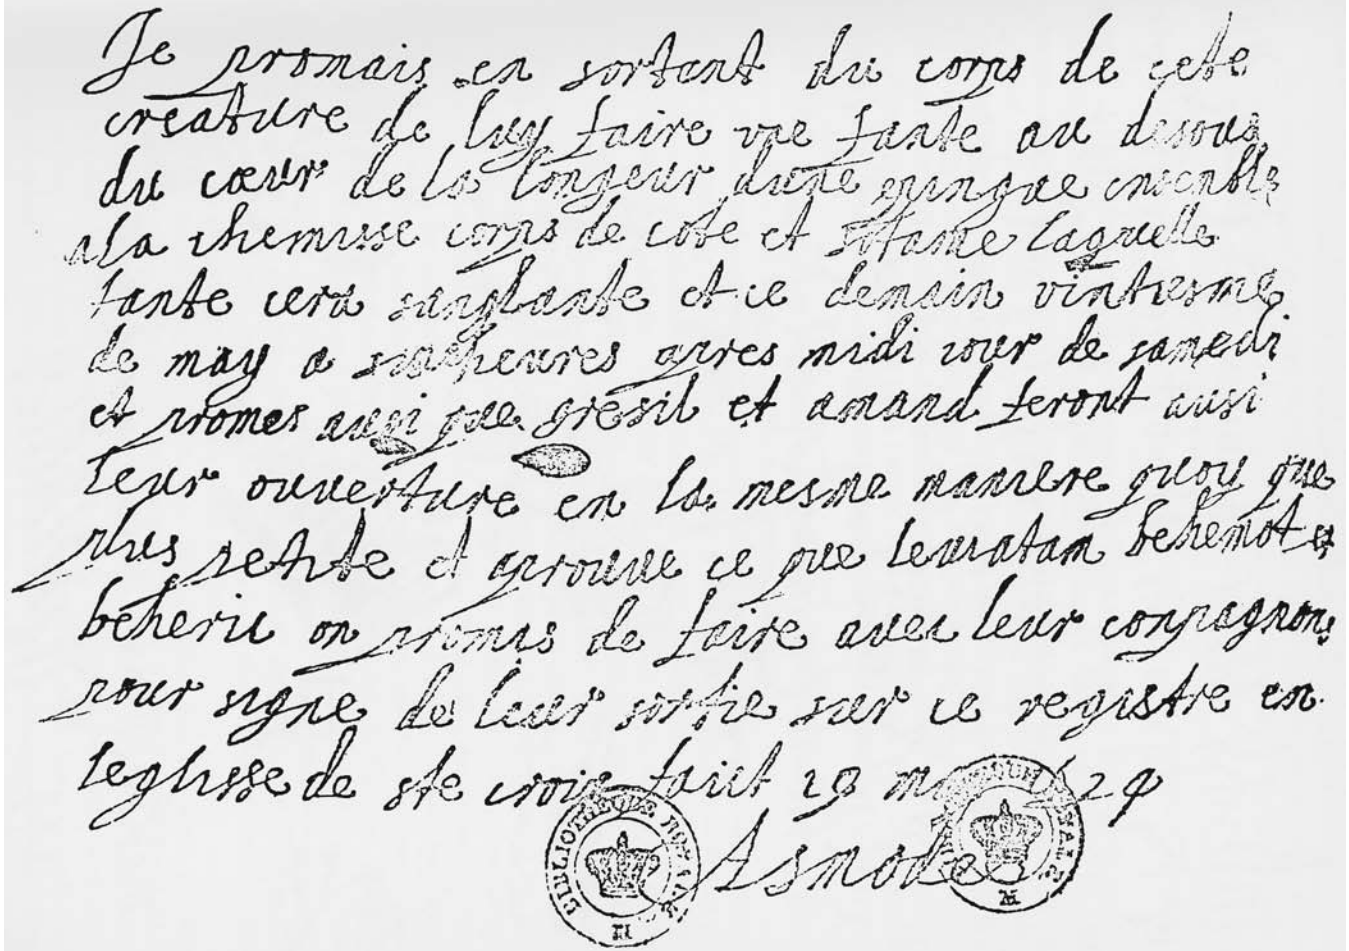 Je promais en sortant du corps de cete
creature de luy faire vne fante au desous
du cœur de la longeur dune pingue ensenble
a la chemisse corps de cote et sotane laquelle
fante cera sanglante et ce demain vintiesme
de may a sinc heures apres midi iour de samedi
et promes ausi que gresil et amand feront ausi
leur ouverture en la mesme maniere quoy que
plus petite et aprouve ce que leviatam behemot et
beherie on promis de faire avec leur conpagnons
pour signe de leur sortie sur ce registre en
leglisse de ste croix faict 19 may
Asmodee